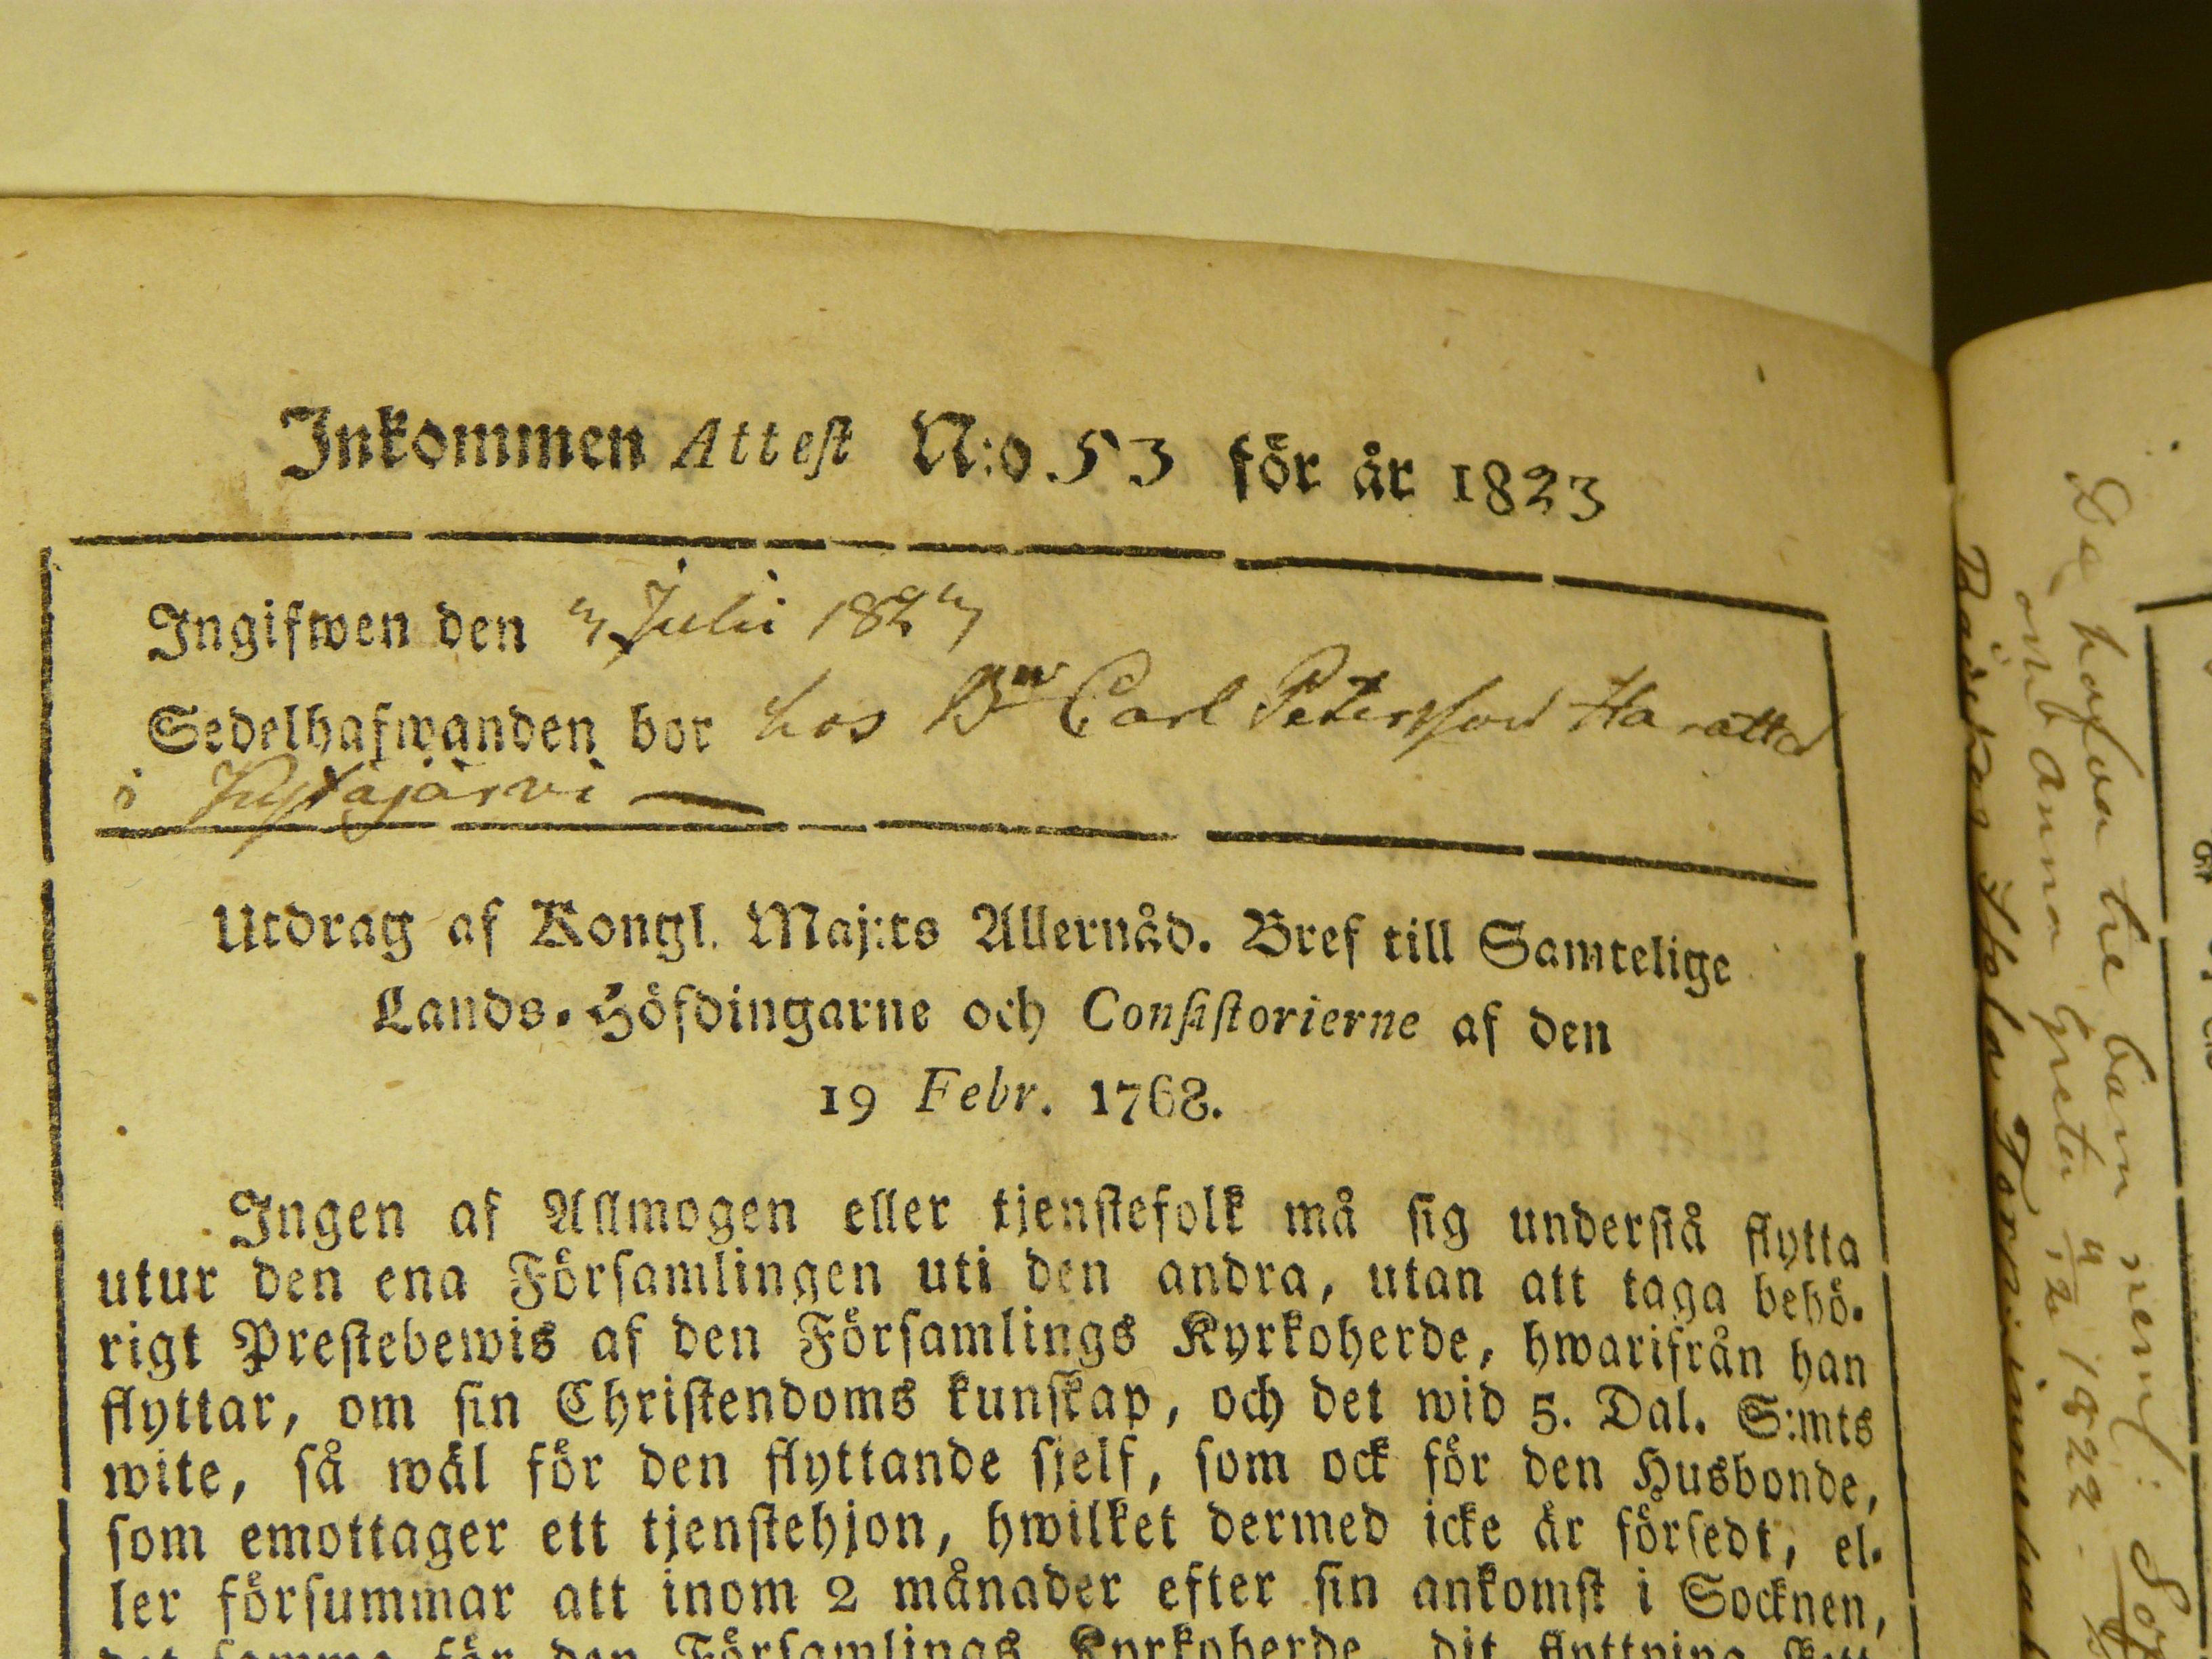 Inkommen Attest N:o 53 för år 1823
Ingifwen den 3 Julii 1823
Sedelhafwanden bor hos Bn Carl Petersson
i
Utdrag af Kongl. Maj:ts Allernåd. Bref till Samtelige
Lands-Höfdingarne och Consistorierne af den
19 Febr. 1768.
Ingen af Allmogen eller tjenstefolk må sig understå flytta
utur den ena Församlingen uti den andra, utan att taga behö-
rigt Prestebewis af den Församlings Kyrkoherde, hwarifrån han
flyttar, om sin Christendoms kunskap, och det wid 5. Dal. S:mts
wite, så wäl för den flyttande sjelf, som ock för den Husbonde,
som emottager ett tjenstehjon, hwilket dermed icke är försedt, el-
ler försummar att inom 2 månader efter sin ankomst i Socknen,
det samma för den Församlings Kyrkoherde, dit flyttning skett
De hafva tre barn neml:
anna Greta 4/12 1822.